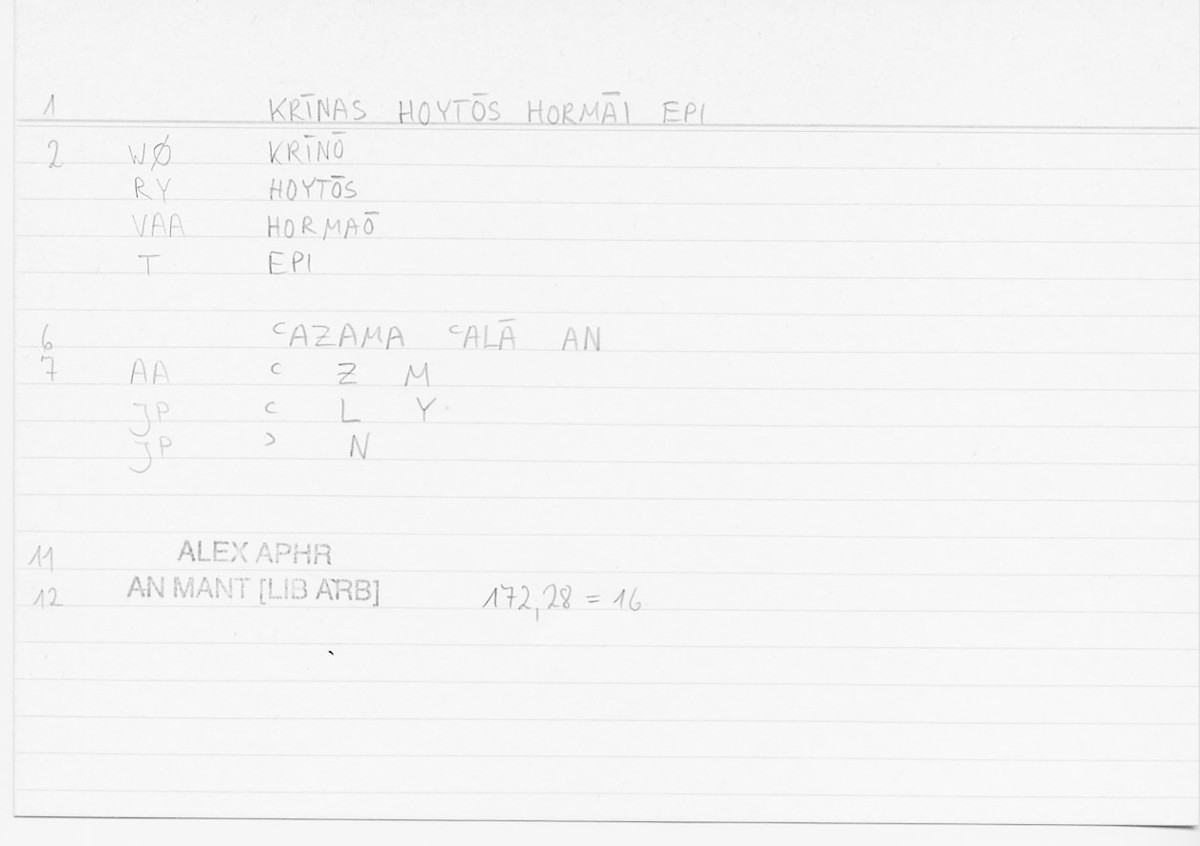 1 KRĪNAS HOYTŌS HORMĀI EPI
2 WØ KRĪNŌ
RY HOYTŌS
VAA HORMAŌ
T EPI
6 ʿAZAMA ʿALĀ AN
7 AA ʿ Z M
JP ʿ L Y
JP ʾ N
11 ALEX APHR
12 AN MANT [LIB ARB] 172,28 = 16